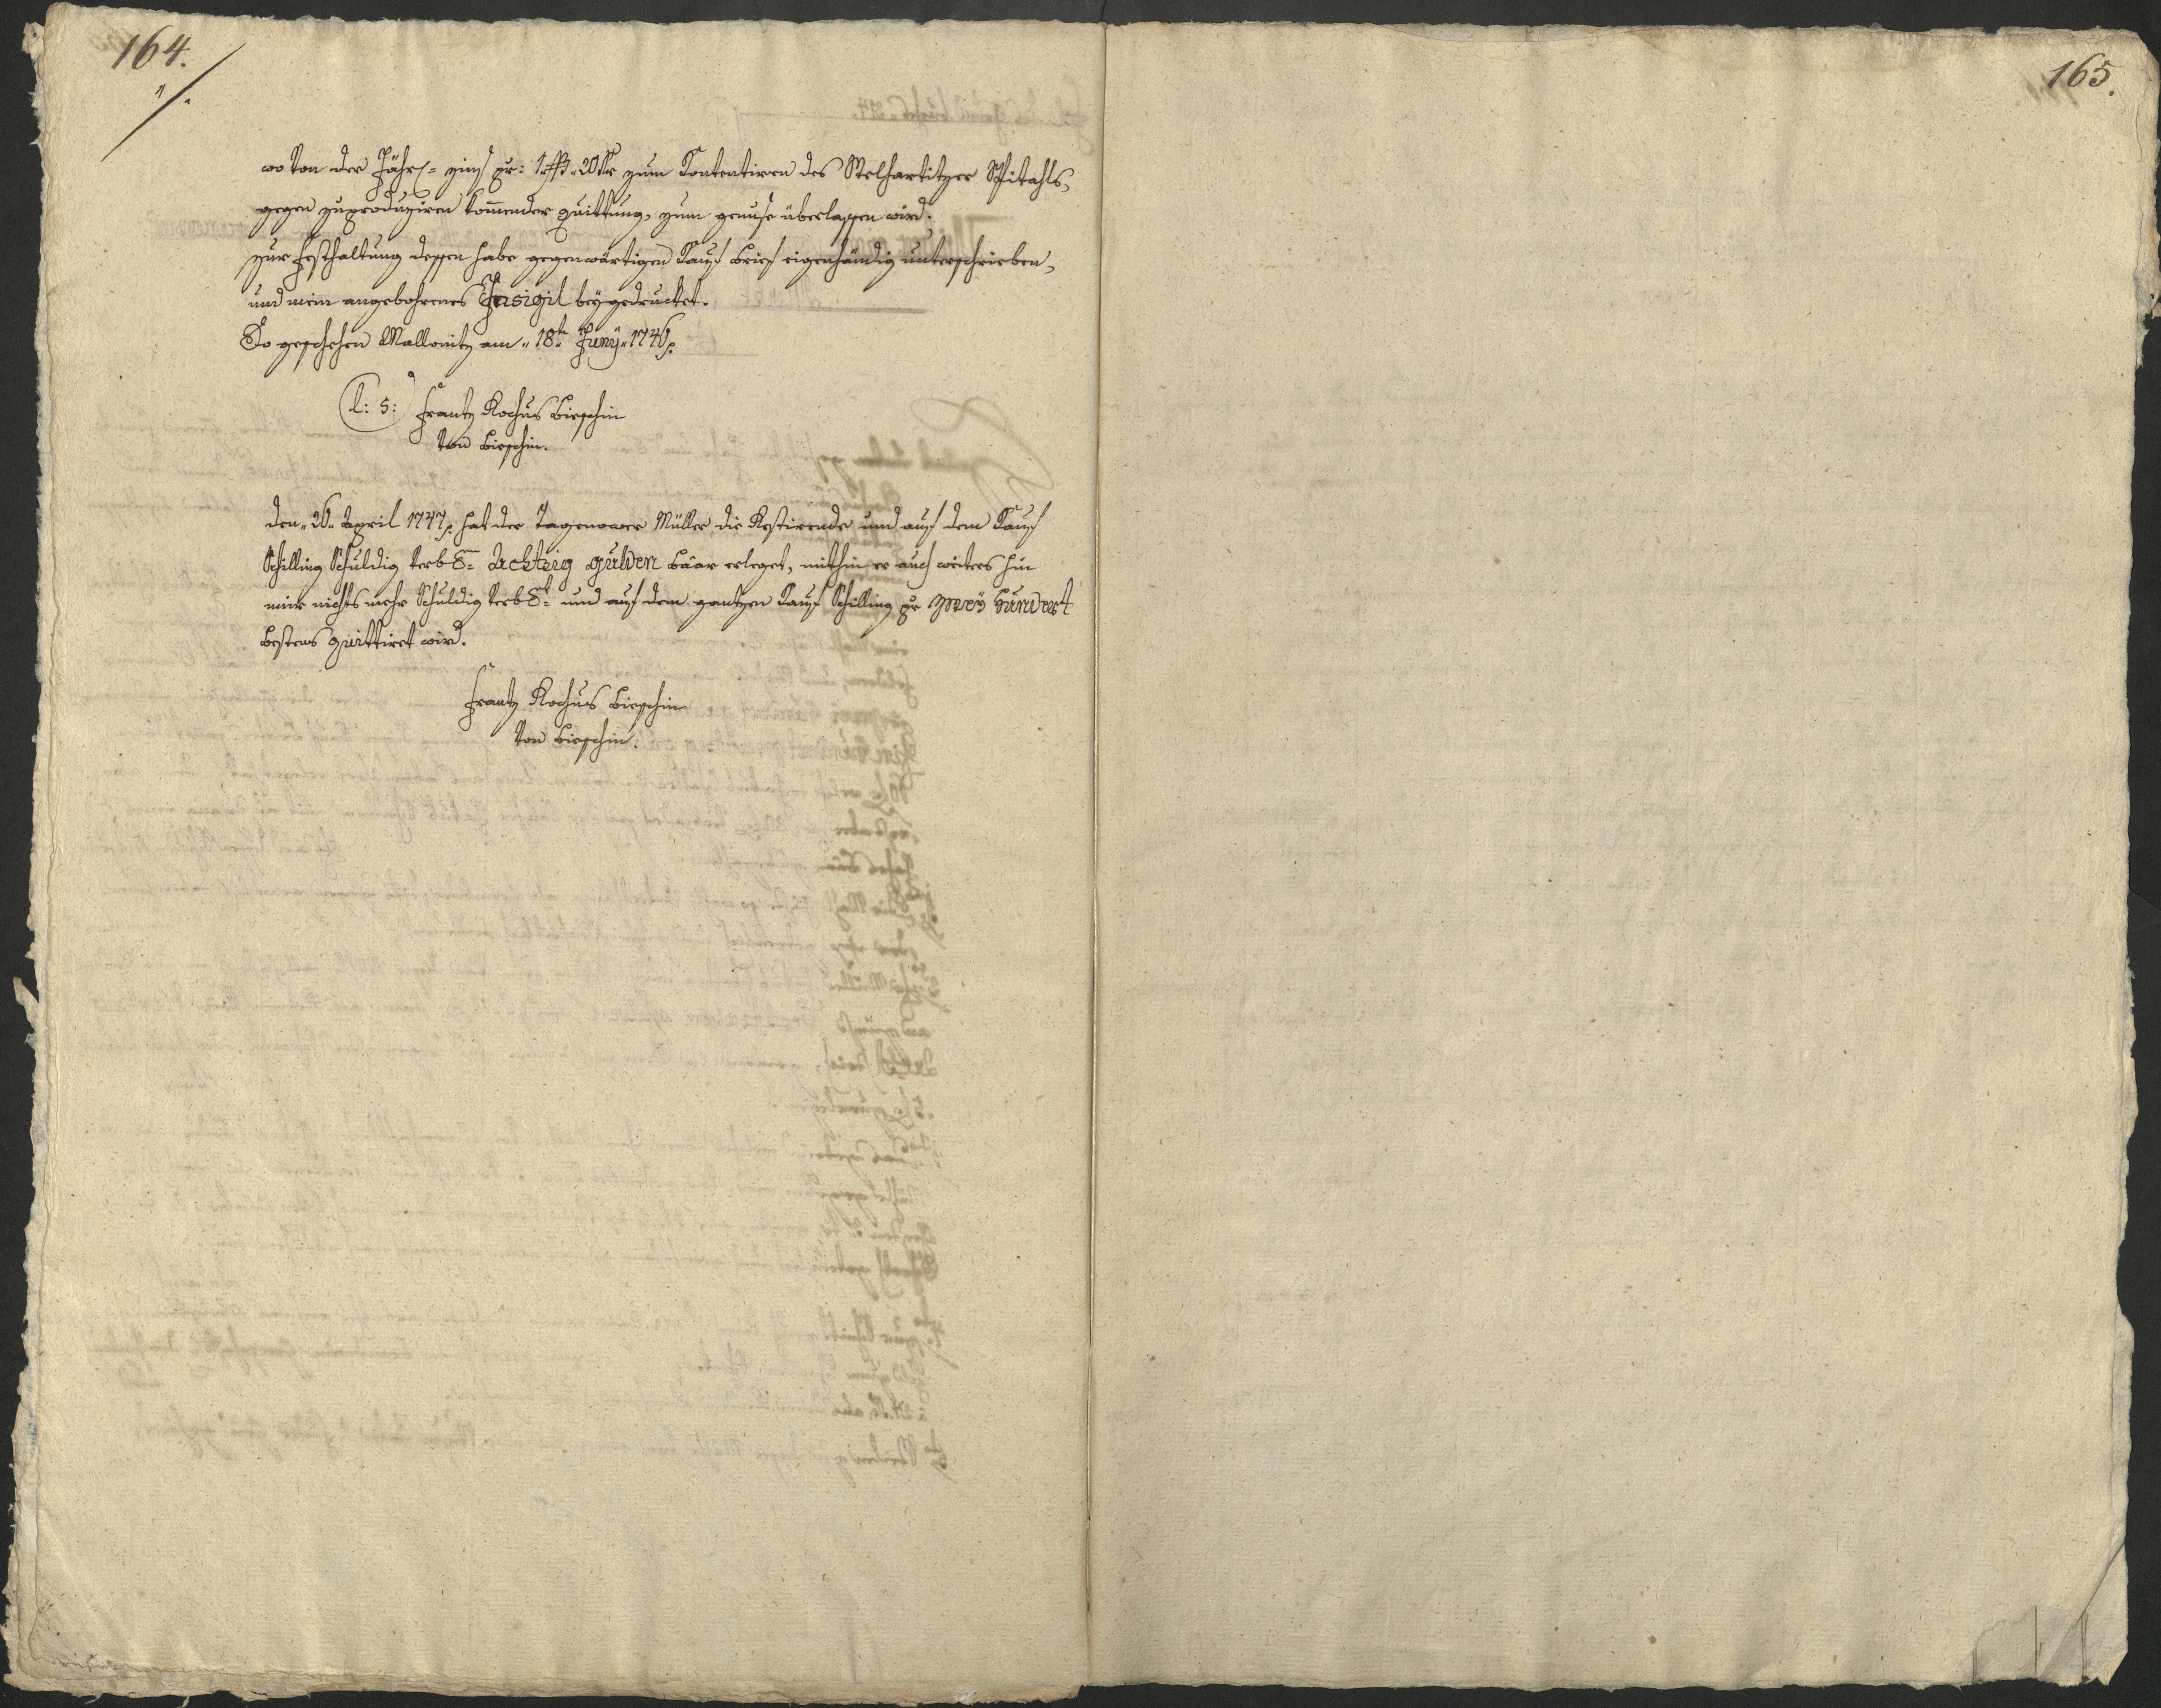 164.
wo von der Jährl= zins pr: 1 ß 20 kr zum Contentiren des Welhartitzer Spitahls,
gegen zuproduziren kom̄ender quittung, zum genuße überlassen wird.
zur Festhaltung dessen habe gegenwärtigen Kauf brief eigenhändig unterschrieben,
und mein angebohrnes Insigil beygedrucket.
So geschehen Mallonitz am 18t Juny 1746.
L: S: Frantz Rochus Bieschin
von Bieschin.
den 26 April 1747 hat der Tagenower Müller die Restirende und auf dem Kauf
Schilling Schuldig verb: Achtzig gulden bâar erleget, mithin er auch weiters hin
mir nichts mehr Schuldig verb: und auf dem gantzen Kauf Schilling pr Zweÿ Hundert
bestens quittiret wird.
Frantz Rochus Bieschin
von Bieschin.
165.